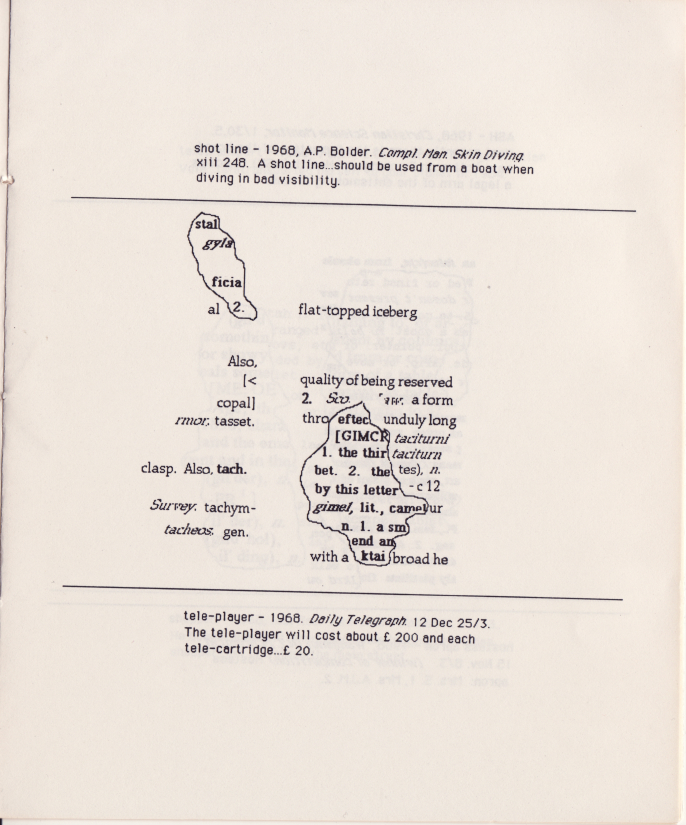 shot line - 1968, A.P. Bolder. Compl. Man. Skin Diving.
xiii 248. A shot line...should be used from a boat when
diving in bad visibility.
stal
gyla
ficia
al 2. flat-topped iceberg
Also,
[< quality of being reserved
copal] 2. Sco. a form
rmor, tasset. thro eftec unduly long
[GIMCR taciturni
1. the thir taciturn
clasp. Also, tach. bet. 2. the tes), n.
by this letter -c 12
Survey. tachym- gimel, lit., camel ur
n. 1. a sm
tacheos, gen. end an
with a ktai broad he
tele-player - 1968. Daily Telegraph. 12 Dec 25/3.
The tele-player will cost about £ 200 and each
tele-cartridge...£ 20.